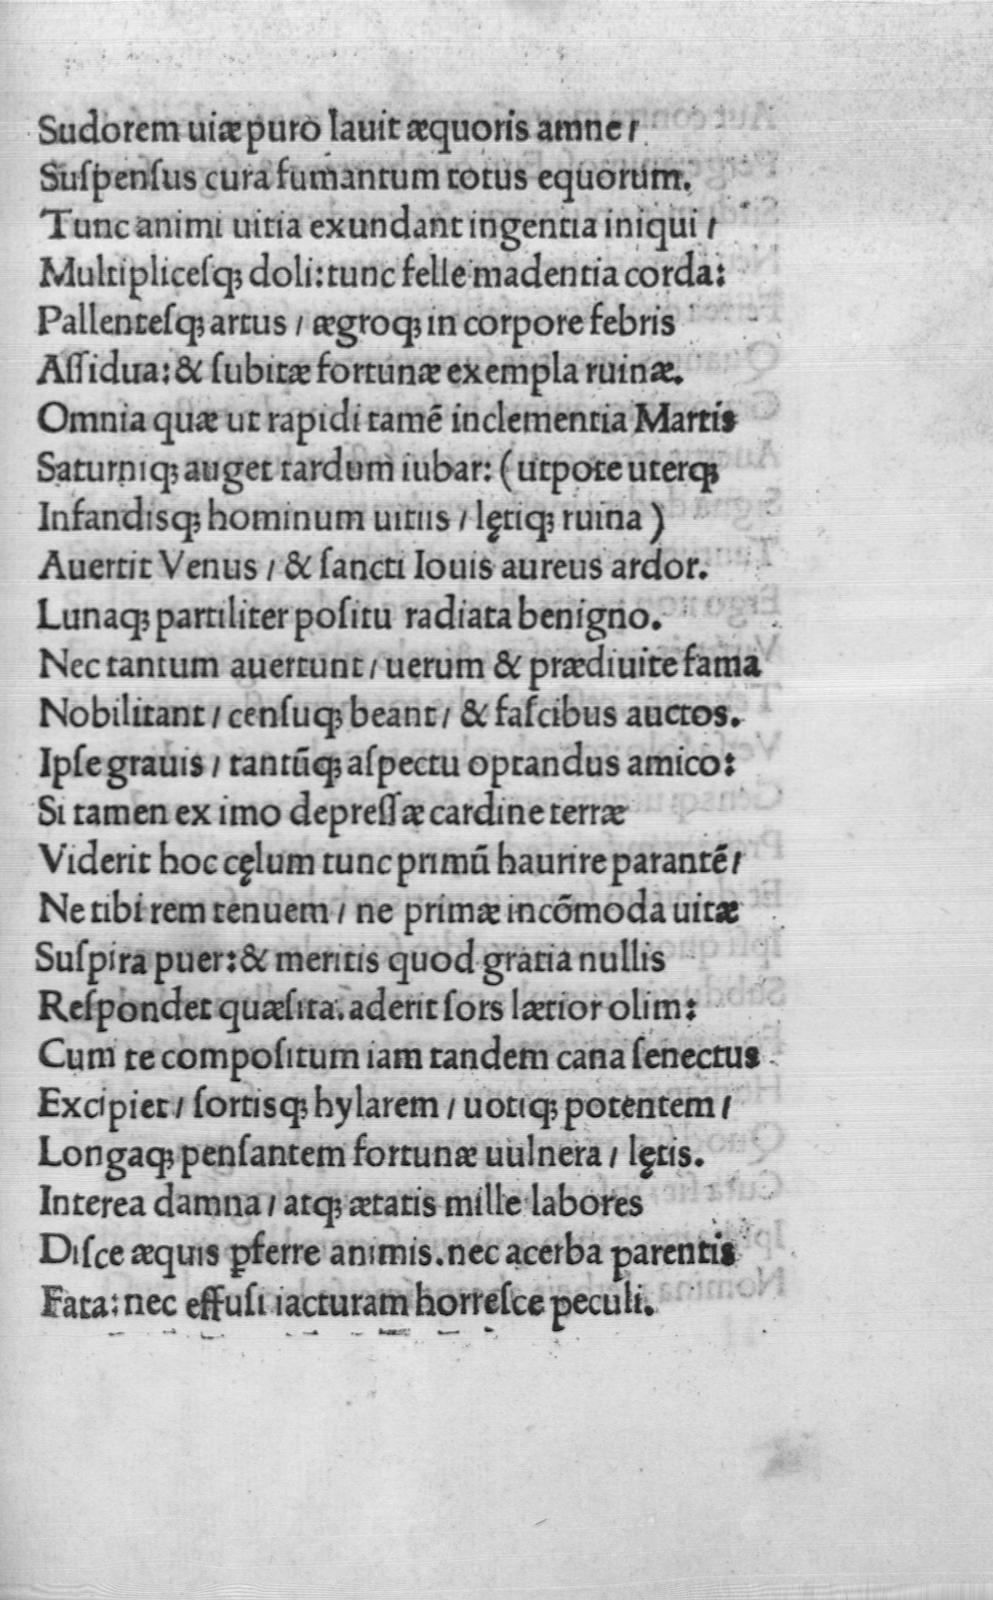 Sudorem uiæ puro lauit æquoris amne /
Suſpenſus cura fumantum totus equorum.
Tunc animi uitia exundant ingentia iniqui /
Multipliceſqꝫ doli: tunc felle madentia corda:
Pallenteſqꝫ artus / ægroqꝫ in corpore febris
Aſſidua: & ſubitæ fortunæ exempla ruinæ.
Omnia quæ ut rapidi tamē inclementia Martis
Saturniqꝫ auget tardum iubar: (utpote uterqꝫ
Infandisqꝫ hominum uitiis / lętiqꝫ ruina)
Auertit Venus / & ſancti Iouis aureus ardor.
Lunaqꝫ partiliter poſitu radiata benigno.
Nec tantum auertunt / uerum & prædiuite fama
Nobilitant / cenſuqꝫ beant / & faſcibus auctos.
Ipſe grauis / tantūqꝫ aſpectu optandus amico:
Si tamen ex imo depreſſæ cardine terræ
Viderit hoc cęlum tunc primū haurire parantē /
Ne tibi rem tenuem / ne primæ incōmoda uitæ
Suſpira puer: & meritis quod gratia nullis
Reſpondet quæſita. aderit ſors lætior olim:
Cum te compoſitum iam tandem cana ſenectus
Excipiet / ſortisqꝫ hylarem / uotiqꝫ potentem /
Longaqꝫ penſantem fortunæ uulnera / lętis.
Interea damna / atqꝫ ætatis mille labores
Diſce æquis ꝑferre animis. nec acerba parentis
Fata: nec effuſi iacturam horreſce peculi.